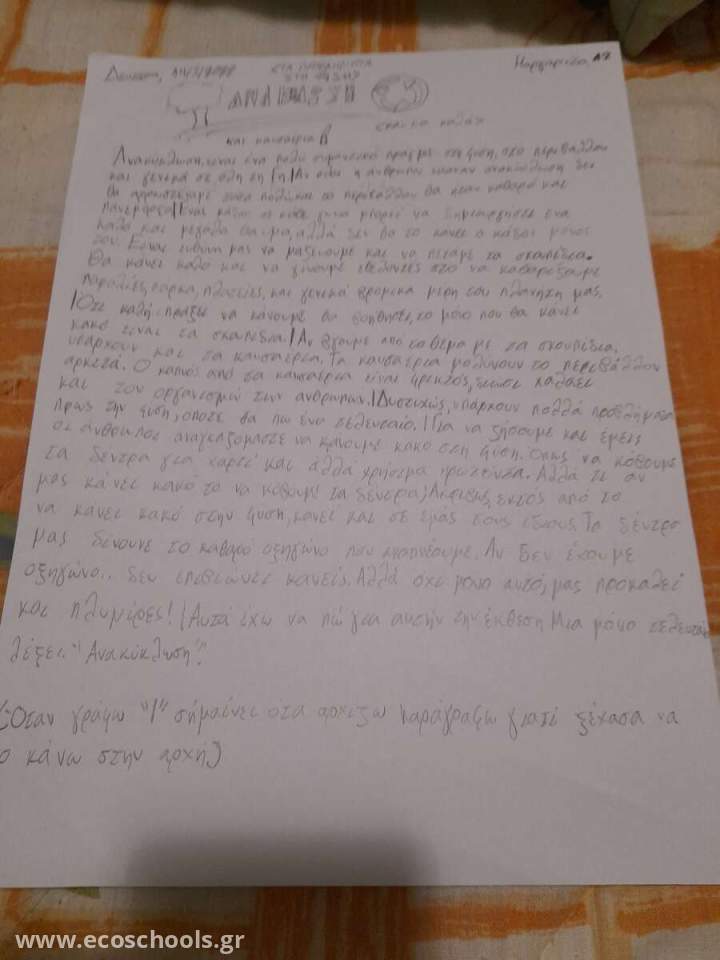 Δευτέρα, 14/3/2022 Μαργαρίτα, Α2
ΣΤΗ ΦΥΣΗ
και καυσαέρια
Ανακύκλωση, είναι ένα πολύ σημαντικό πράγμα στη φύση, στο περιβάλλον
και γενικά σε όλη τη γη./Αν όλοι η άνθρωποι έκαναν ανακύκλωση δεν
θα πολύ και το περιβάλλον θα ήταν καθαρό και
πανέμορφο/Ένας κάδος σε κάθε μπορεί να δημιουργήσει ένα
καλό και μεγάλο θαύμα, αλλά δεν θα το κάνει ο κάδος μόνος
του. Είναι ευθύνη μας να μαζεύουμε και να πετάμε τα σκουπίδια.
Θα κάνει καλό και να γίνουμε εθελοντές στο να καθαρίζουμε
παραλίες, πάρκα, πλατείες, και γενικά βρόμικα μέρη του πλανήτη μας.
/Ότι καλή πράξει να κάνουμε θα βοηθήσει, το μόνο που θα κάνει
κακό είναι τα σκουπίδια./Αν βγουμε από το θέμα με τα σκουπίδια,
υπάρχουν και τα καυσαέρια. Τα καυσαέρια μολύνουν το περιβάλλον
αρκετά. Ο καπνός από τα καυσαέρια είναι χαλάει
και τον οργανισμό των ανθρώπων./Δυστυχώς, υπάρχουν πολλά προβλήματα
προς την φύση, οπότε θα πω ένα τελευταίο./Για να ζήσουμε και εμείς
οι άνθρωποι αναγκαζόμαστε να κάνουμε κακό στη φύση. Όπως να κόβουμε
τα δέντρα για χαρτί και άλλα χρήσιμα Αλλά τι αν
μας κάνει κακό το να κόβουμε τα δέντρα; Ακριβώς, εκτός από το
να κάνει κακό στην φύση, κάνει και σε εμάς τους ίδιους. Τα δέντρα
μας δίνουνε το καθαρό οξηγώνο που αναπνέουμε. Αν δεν έχουμε
οξηγώνο.. δεν κανείς. Αλλά όχι μόνο αυτό, μας προκαλεί
και πλυμίρες!/Αυτά έχω να πω για αυτήν την έκθεση Μια μόνο τελευταία
λέξει "Ανακύκλωση".
(Όταν γράφω "/" σημαίνει ότα αρχίζω παράγραφω γιατί ξέχασα να
το κάνω στην αρχή)
www.ecoschools.gr